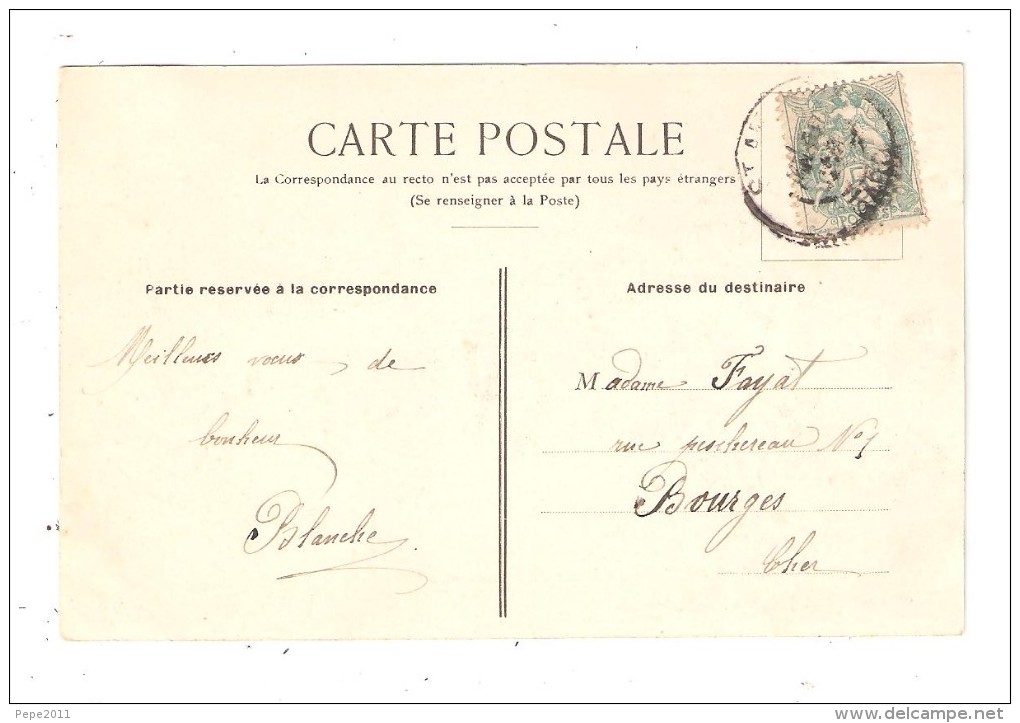 CARTE POSTALE
La Correspondance au recto n'est pas acceptée par tous les pays étrangers
(Se renseigner à la Poste)
Partie reservée à la correspondance
Meilleurs vœux de
bonheur
Blanche
Adresse du destinaire
Madame Fayat
rue peschereau No 1
Bourges
Cher
Pepe2011
delcampe.net